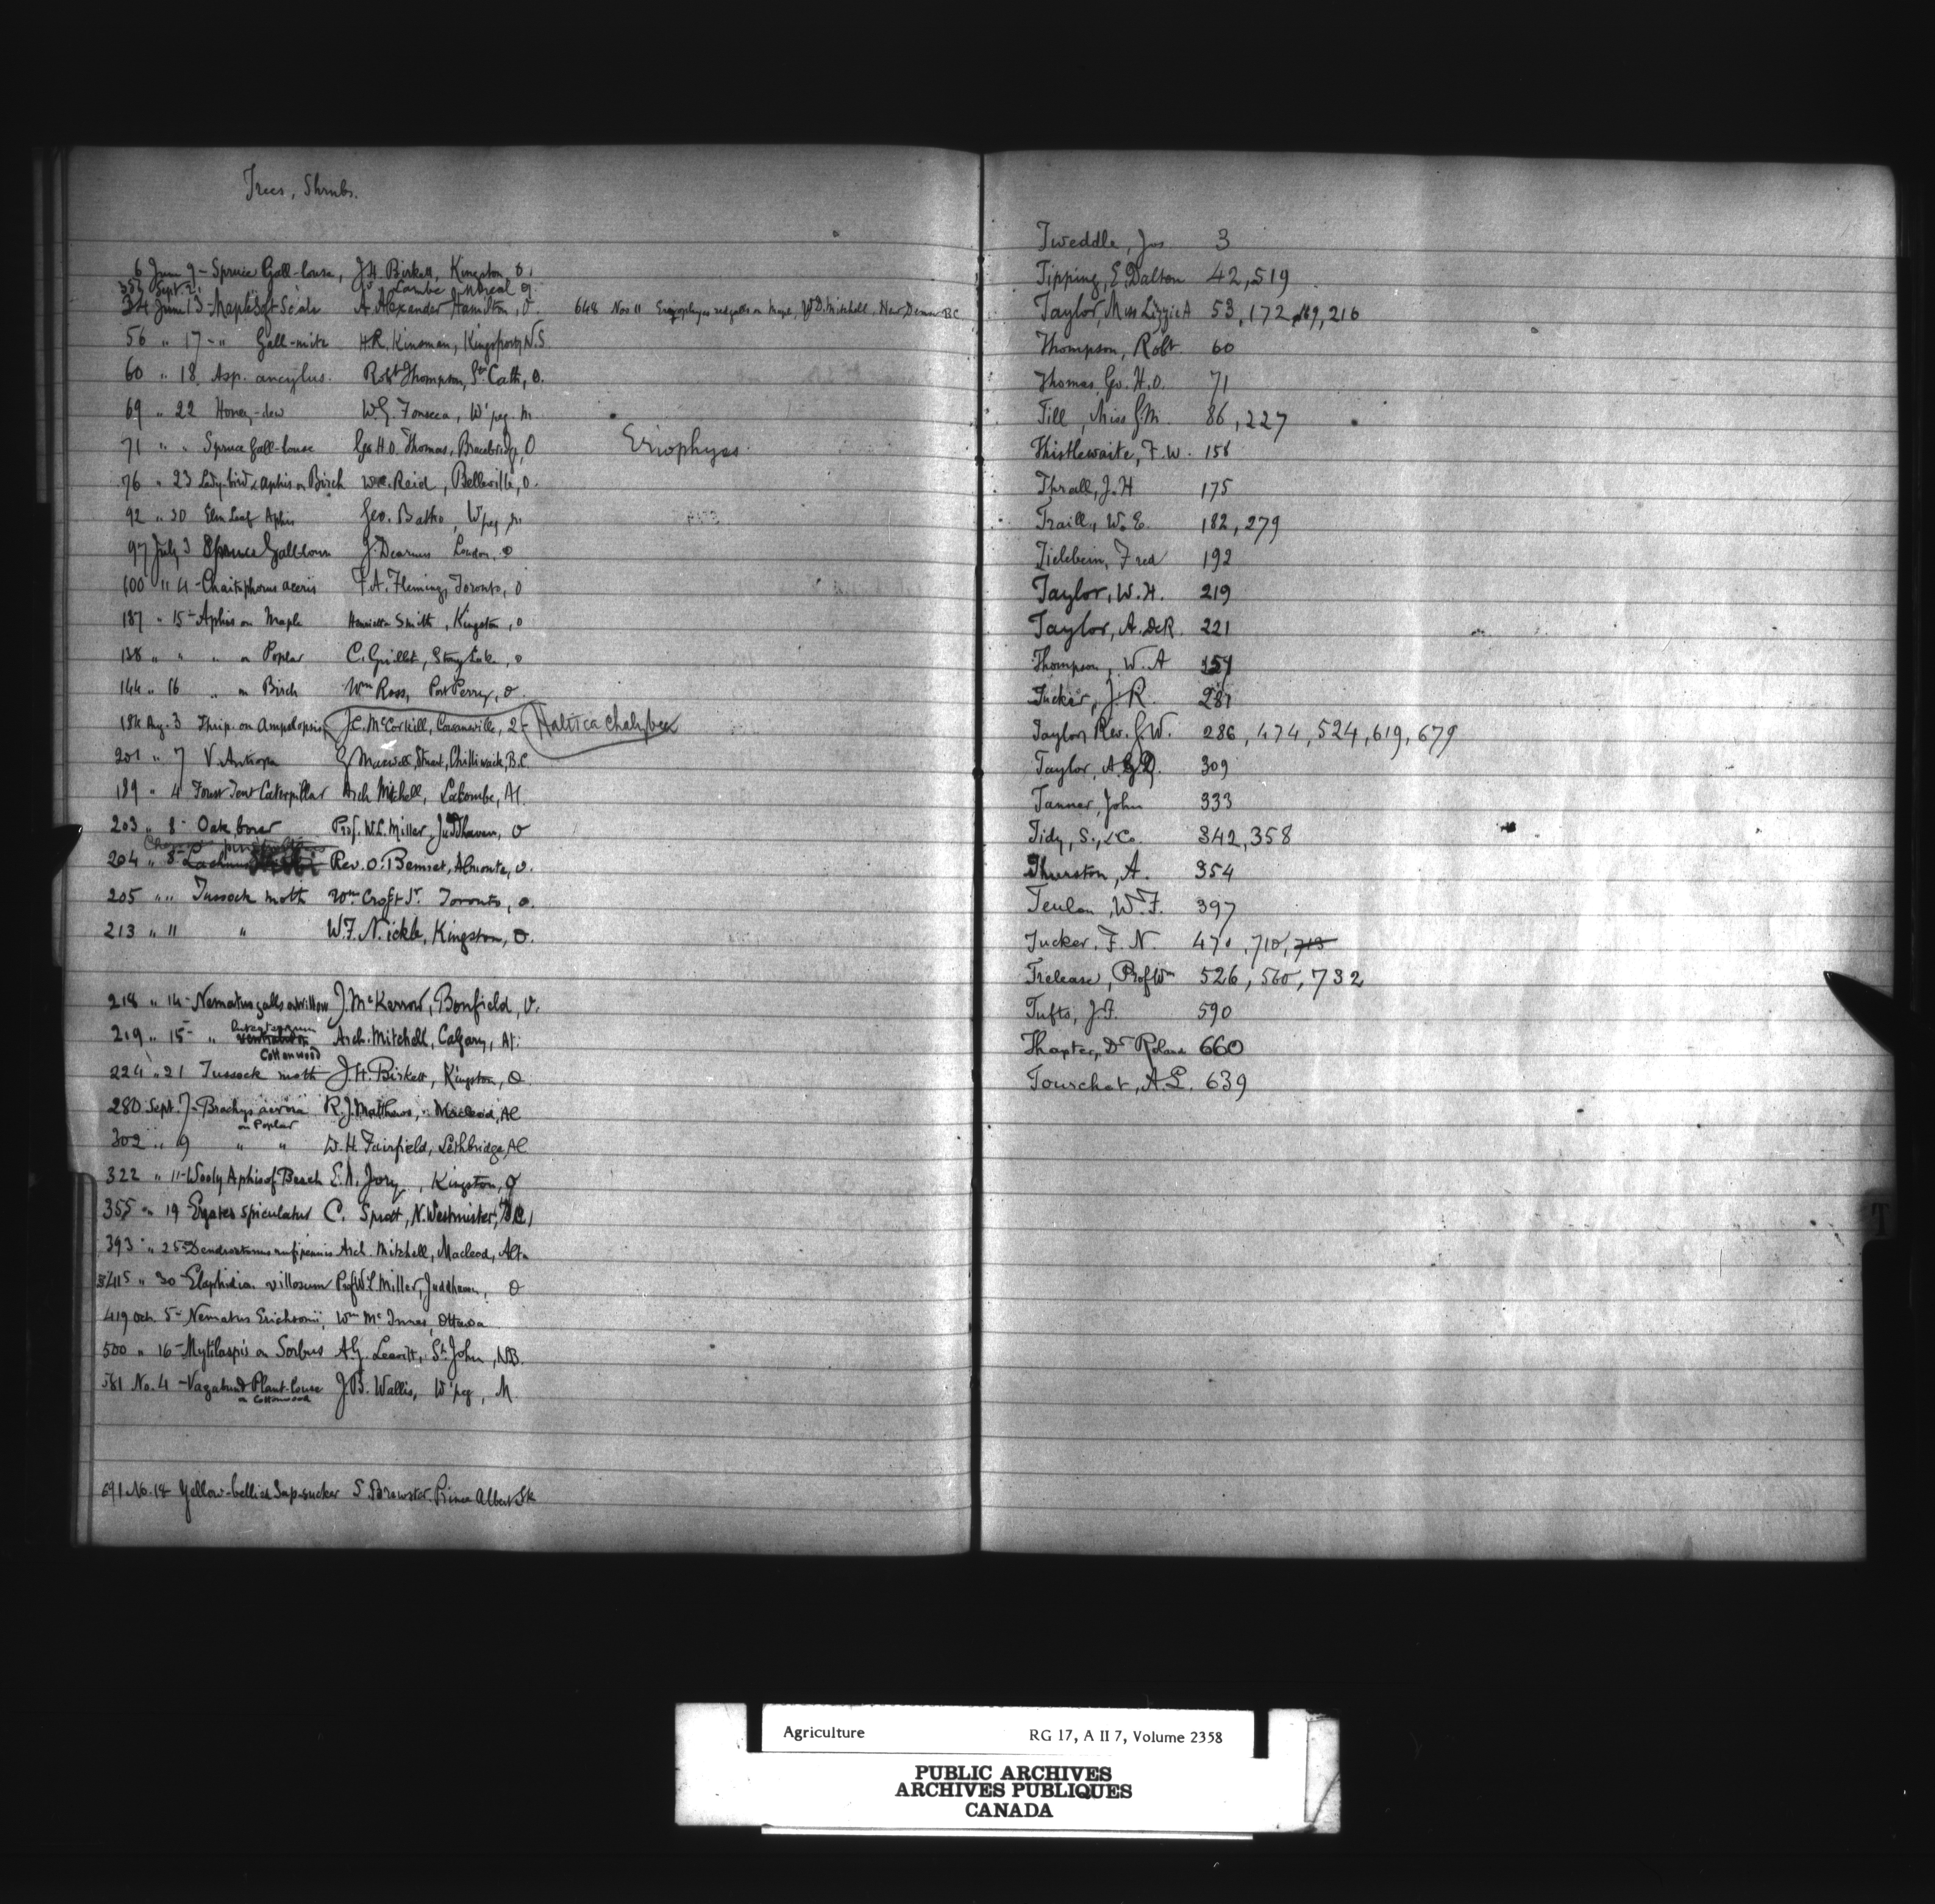 Trees, Shrubs.
6 June 9 - Spruce Gall-louse, J.H. Birkett, Kingston, O.
357 Sept. 21 Lambe
34 June 13 - Maple Soft Scale A. Alexander Hamilton, O. 648 Nov 11 red galls on Maple, W.D. Mitchell, New Denver B.C.
56 " 17 - " Gall-mite H.R. Kinsman, Kingsport, N.S.
60 " 18 Asp. ancylus. Robt Thompson, St. Cath, O.
69 " 22 Honey-dew W.G. Fonseca, W'peg. M.
71 " " Spruce Gall-louse Geo H.O. Thomas, Bracebridge, O
Eriophyes
76 " 23 Lady-bird & aphis on Birch Wm. Reid, Belleville, O.
92 " 30 Elm Leaf Aphis Geo. Batho, W'peg M.
97 July 3 Spruce Gall-louse J. Dearness London, O
100 " 4 - Chaitophorus aceris F.A. Fleming, Toronto, O
137 " 15 - Aphis on Maple Henrietta Smith, Kingston, O
138 " " " on Poplar C. Grillet, Stony Lake, O
144 " 16 " on Birch Wm Ross, Port Perry, O.
184 Aug. 3 Thrip. on Ampelopsis J.C. McCorkill, Cowansville, Q - Haltica chalybea
201 " 7 V. Antiopa G Maxwell Stuart, Chilliwack, B.C.
189 " 4 Forest Tent Caterpillar Arch Mitchell, Lacombe, Al.
203 " 8 - Oak borer Prof. W.L. Miller, Juddhaven, O
204 " 8 - Lachnus Rev. O. Bennet, Almonte, O.
205 " " Tussock moth Wm. Croft Sr. Toronto, O.
213 " 11 " W.F. Nickle, Kingston, O.
218 " 14 - Nematus galls on willow J. McKerrow, Bonfield, O.
219 " 15 - " Arch. Mitchell, Calgary, Al.
Cottonwood
224 " 21 Tussock moth J.H. Birkett, Kingston, O.
280 Sept. 7 - Brachys R.J. Matthews, Macleod, Al
on Poplar
302 " 9 " " W.H. Fairfield, Lethbridge, Al
322 " 11 - Wooly Aphis of Beech E.A. Jory, Kingston, O
355 " 19 Ergates spiculatus C. Sprott, N. Westminster, B.C.
393 " 25 - Dendroctonus rufipennis Arch. Mitchell, Macleod, Alta
415 " 30 - Elaphidion villosum Prof W.L. Miller, Juddhaven, O
419 Oct 5 - Nematus Erichsonii, Wm McInnes, Ottawa
500 " 16 - Mytilaspis on Sorbus A.G. Leavitt, St. John, N.B.
581 No. 4 - Vagabond Plant-louse J.B. Wallis, W'peg, M.
on Cottonwood
691 No. 18 Yellow-bellied Sap-sucker S Brewster Prince Albert Sk
Tweddle, Jos 3
Tipping, E. Dalton 42, 519
Taylor, Miss Lizzie A 53, 172, 169, 216
Thompson, Robt. 60
Thomas Geo. H.O. 71
Till, Miss G.M. 86, 227
Thistlewaite, F.W. 158
Thrall, J.H 175
Traill, W.E. 182, 279
Tielebein, Fred 192
Taylor, W.H. 219
Taylor, A. DeR. 221
Thompson, W.A
Tucker, J.R. 281
Taylor, Rev. G.W. 286, 474, 524, 619, 679
Taylor, 309
Tanner, John 333
Tidy, S., & Co. 342, 358
Thurston, A. 354
Teulon, W.F. 397
Tucker, F.N. 470, 710, 713
Trelease, Prof Wm 526, 560, 732
Tufts, J.F. 590
Thaxter, Dr Roland 660
Tourchot, A.L. 639
T
Agriculture RG 17, A II 7, Volume 2358
PUBLIC ARCHIVES
ARCHIVES PUBLIQUES
CANADA